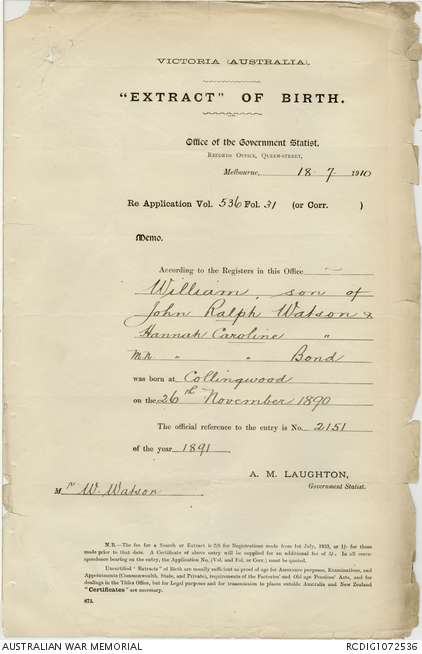 VICTORIA (AUSTRALIA).
"EXTRACT" OF BIRTH.
Office of the Government Statist.
RECORDS OFFICE, QUEEN-STREET,
Melbourne, 18 . 7 1910
Re Application Vol. 536 Fol. 31 (or Corr. )
Memo.
According to the Registers in this Office
William, son of
John Ralph Watson &
Hannah Caroline "
M.N. " " Bond
was born at Collingwood
on the 26th November 1890
The official reference to the entry is No. 2151
of the year 1891.
A. M. LAUGHTON,
Government Statist.
Mr W. Watson
N.B.—The fee for a Search or Extract is 2/6 for Registrations made from 1st July, 1853, or 1/- for those
made prior to that date. A Certificate of above entry will be supplied for an additional fee of 5/-. In all corre-
spondence bearing on the entry, the Application No. (Vol. and Fol. or Corr.) must be quoted.
Uncertified "Extracts" of Birth are usually sufficient as proof of age for Assurance purposes, Examinations, and
Appointments (Commonwealth, State, and Private), requirements of the Factories' and Old age Pensions' Acts, and for
dealings in the Titles Office, but for Legal purposes and for transmission to places outside Australia and New Zealand
"Certificates" are necessary.
673.
AUSTRALIAN WAR MEMORIAL
RCDIG1072536